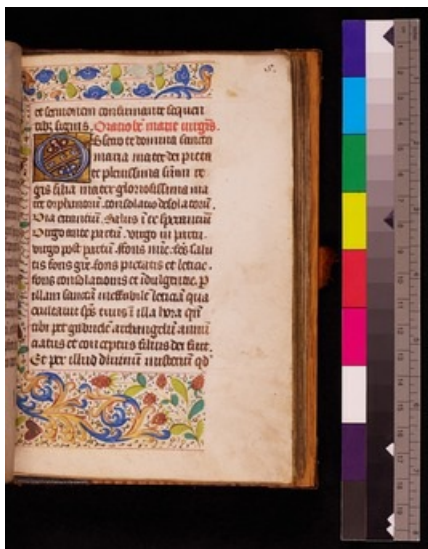 et sermonem confirmante sequen
tibꝫ signis. Oratio be marie virgis.
Obsecro te domina sancta
maria mater dei pieta
te plenissima sūmi re
gis filia mater gloriosissima ma
ter orphanorū. consolatio desolatorū.
via errantiū. salus ī te sperantiū
virgo ante partū. virgo in partu.
virgo post partū. ffons mīe. fōs salu
tis fons gīe. fons pietatis et leticie.
fons consolationis et īdulgētie. p
illam sanctā ineffabilē leticiā qua
exultauit sps tuus ī illa hora qn̄
tibi per gabrielē archangelū annū
ciatus et conceptus filius dei fuit.
Et per illud diuinū misteriū qd̄